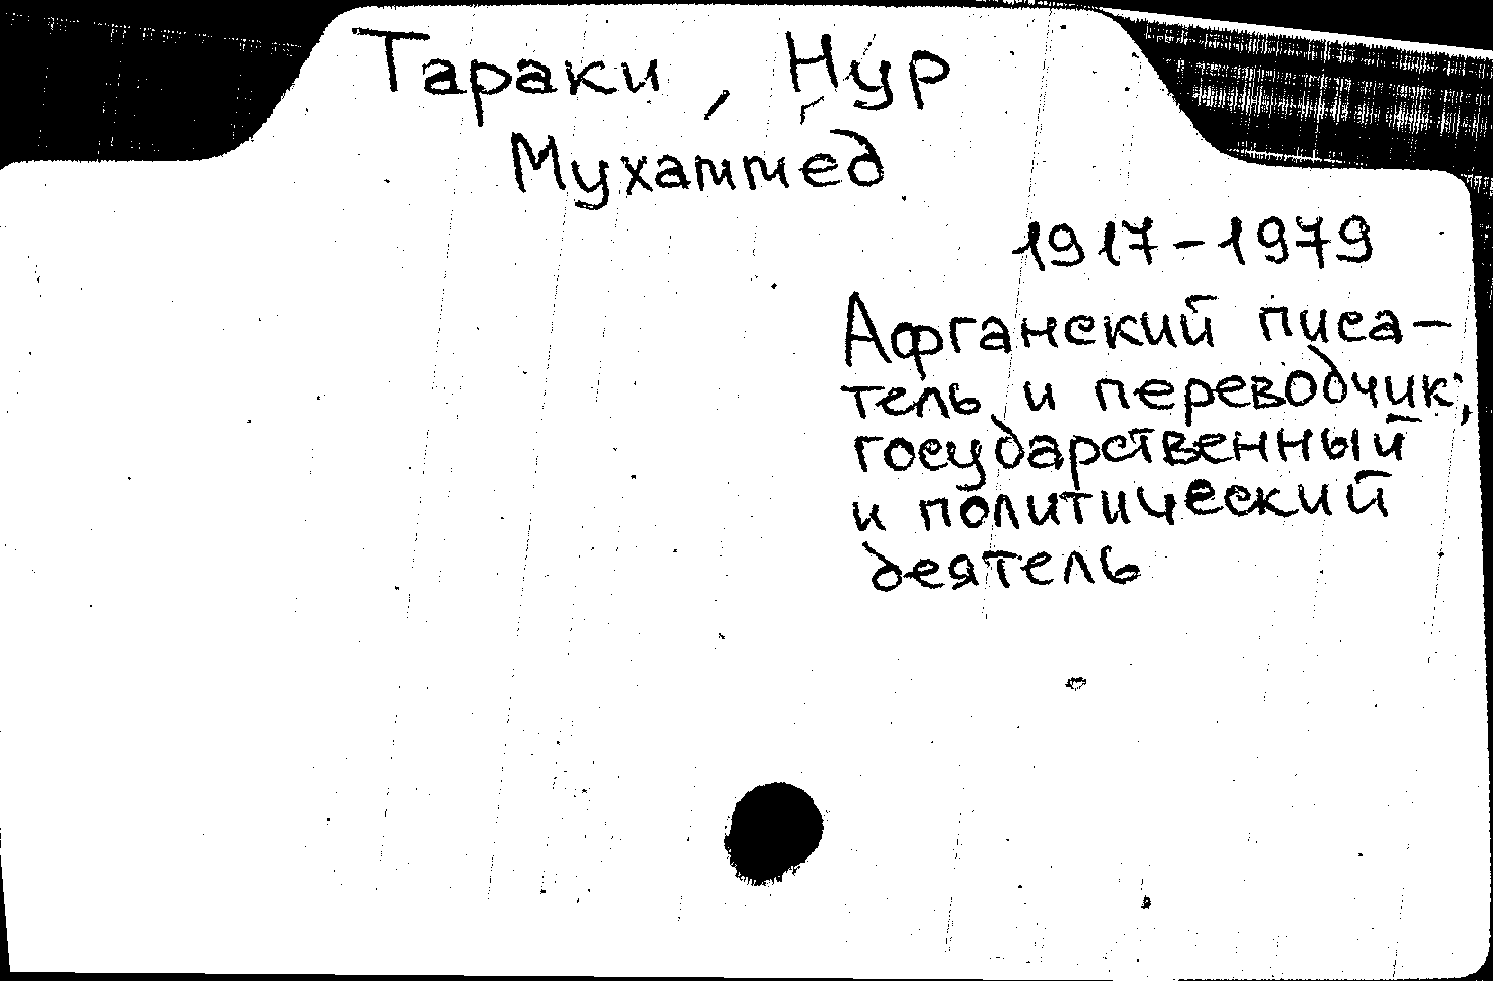 Тараки, Нур
Мухаммед
1917-1979
Афганский писа-
тель и переводчик;
государственный
и политический
деятель